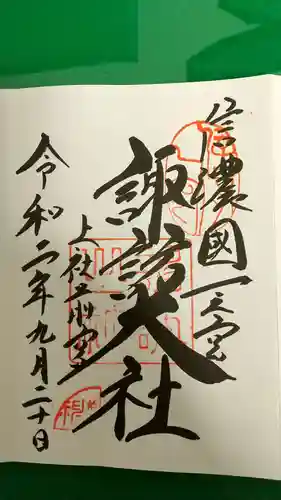 信濃國一之宮
諏訪大社
上社前宮
令和二年九月二十日